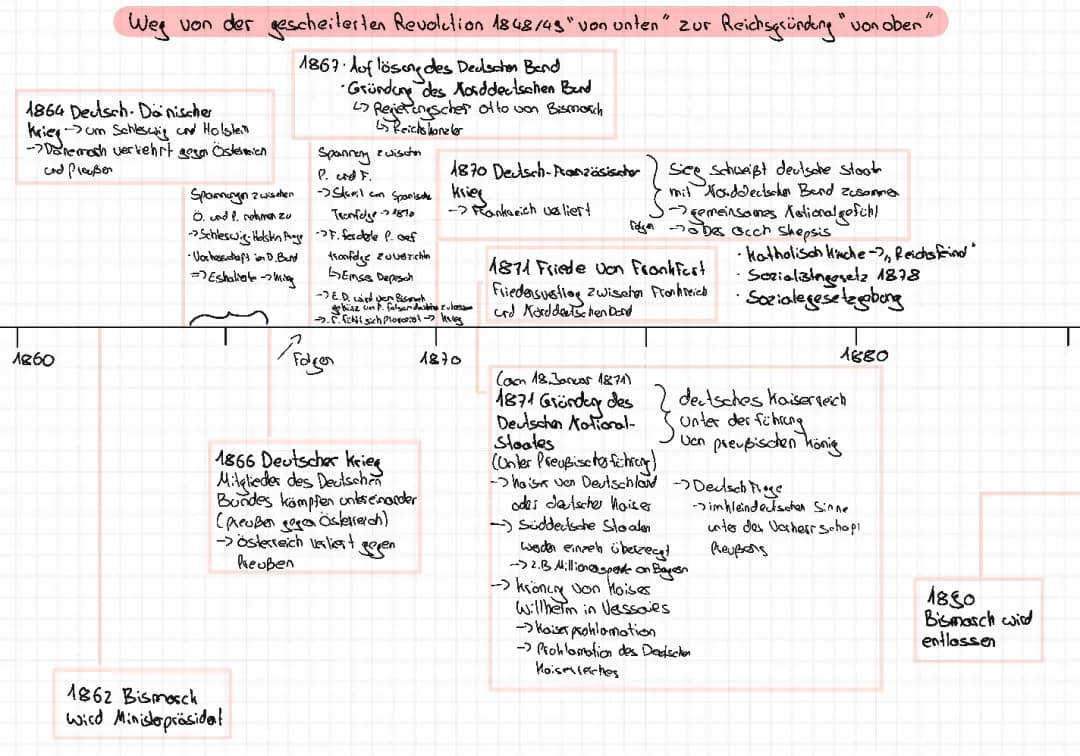 Weg von der gescheiterten Revolution 1848/49 "von unten" zur Reichsgründung "von oben"
1867 · Auflösung des Deutschen Bund
· Gründung des Norddeutschen Bund
↳ Regierungschef Otto von Bismarck
↳ Reichskanzler
1864 Deutsch-Dänischer
Krieg -> um Schleswig und Holstein
-> Dänemark verliert gegen Österreich
und Preußen
Spannungen zwischen
Ö. und P. nahmen zu
-> Schleswig-Holstein Frage
· Vorherrschaft im D. Bund
=> Eskaliert -> Krieg
Spannung zwischen
P. und F.
-> Streit um Spanische
Tronfolge -> 1870
-> F. forderte P. auf
tronfolge zu verzichten
↳ Emser Depesch
-> E.D. wird von Bismarck
gekürzt um F. falsch dastehen zu lassen
-> F. fühlt sich provoziert -> krieg
1870 Deutsch-Französischer
Krieg
-> Frankreich verliert
Folgen
Sieg schweißt deutsche Staaten
mit Norddeutschen Bund zusammen
-> gemeinsames Nationalgefühl
-> aber auch Skepsis
1871 Friede von Frankfurt
Friedensvertrag zwischen Frankreich
und Norddeutschen Bund
· Katholisch Kirche -> „Reichsfeind"
· Sozialistengesetz 1878
· Sozialegesetzgebung
1860
Folgen
1870
1880
(am 18. Januar 1871)
1871 Gründung des
Deutschen National-
Staates
(Unter Preußischer führung)
-> Kaiser von Deutschland
oder deutscher Kaiser
-> Süddeutsche Staaten
werden einzeln überzeugt
-> z.B Millionenspende an Bayern
-> Krönung von Kaiser
Willhelm in Versailles
-> Kaiserproklamation
-> Proklamation des Deutschen
Kaiserreiches
deutsches Kaiserreich
unter der führung
von preußischen König
-> Deutsch Frage
-> im kleindeutschen Sinne
unter der Vorherrschaft
Preußens
1866 Deutscher Krieg
Mitglieder des Deutschen
Bundes kämpfen untereinander
(Preußen gegen Österreich)
-> Österreich verliert gegen
Preußen
1890
Bismarck wird
entlassen
1862 Bismarck
wird Ministerpräsident